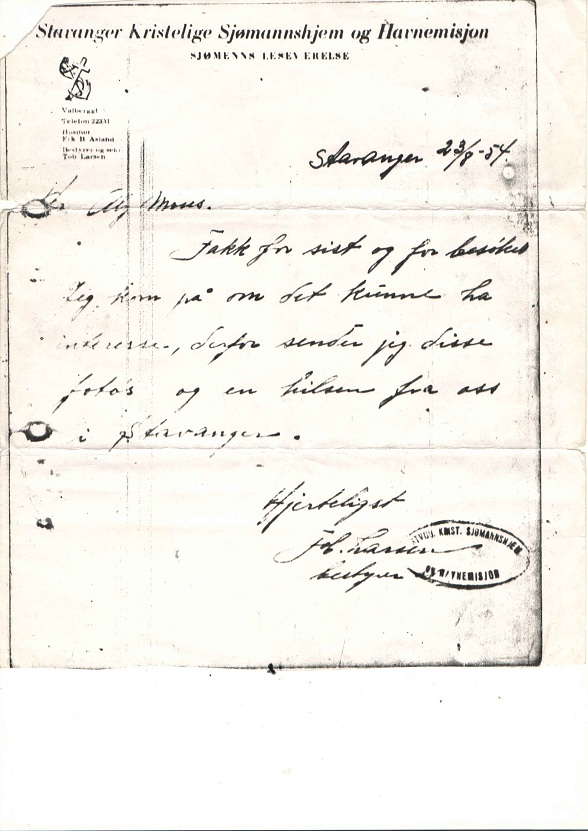 Stavanger Kristelige Sjømannshjem og Havnemisjon
SJØMENNS LESEVÆRELSE
Telefon 22331
Husmor
Bestyrer og sekr.
Larsen
Stavanger 23/8-54.
Takk for sist og for besøket
Jeg kom på om det kunne ha
interesse, derfor sender jeg disse
fotos og en hilsen fra oss
i Stavanger.
Hjerteligst
Larsen
bestyrer
KRIST. SJØMANNSHJEM
OG HAVNEMISJON